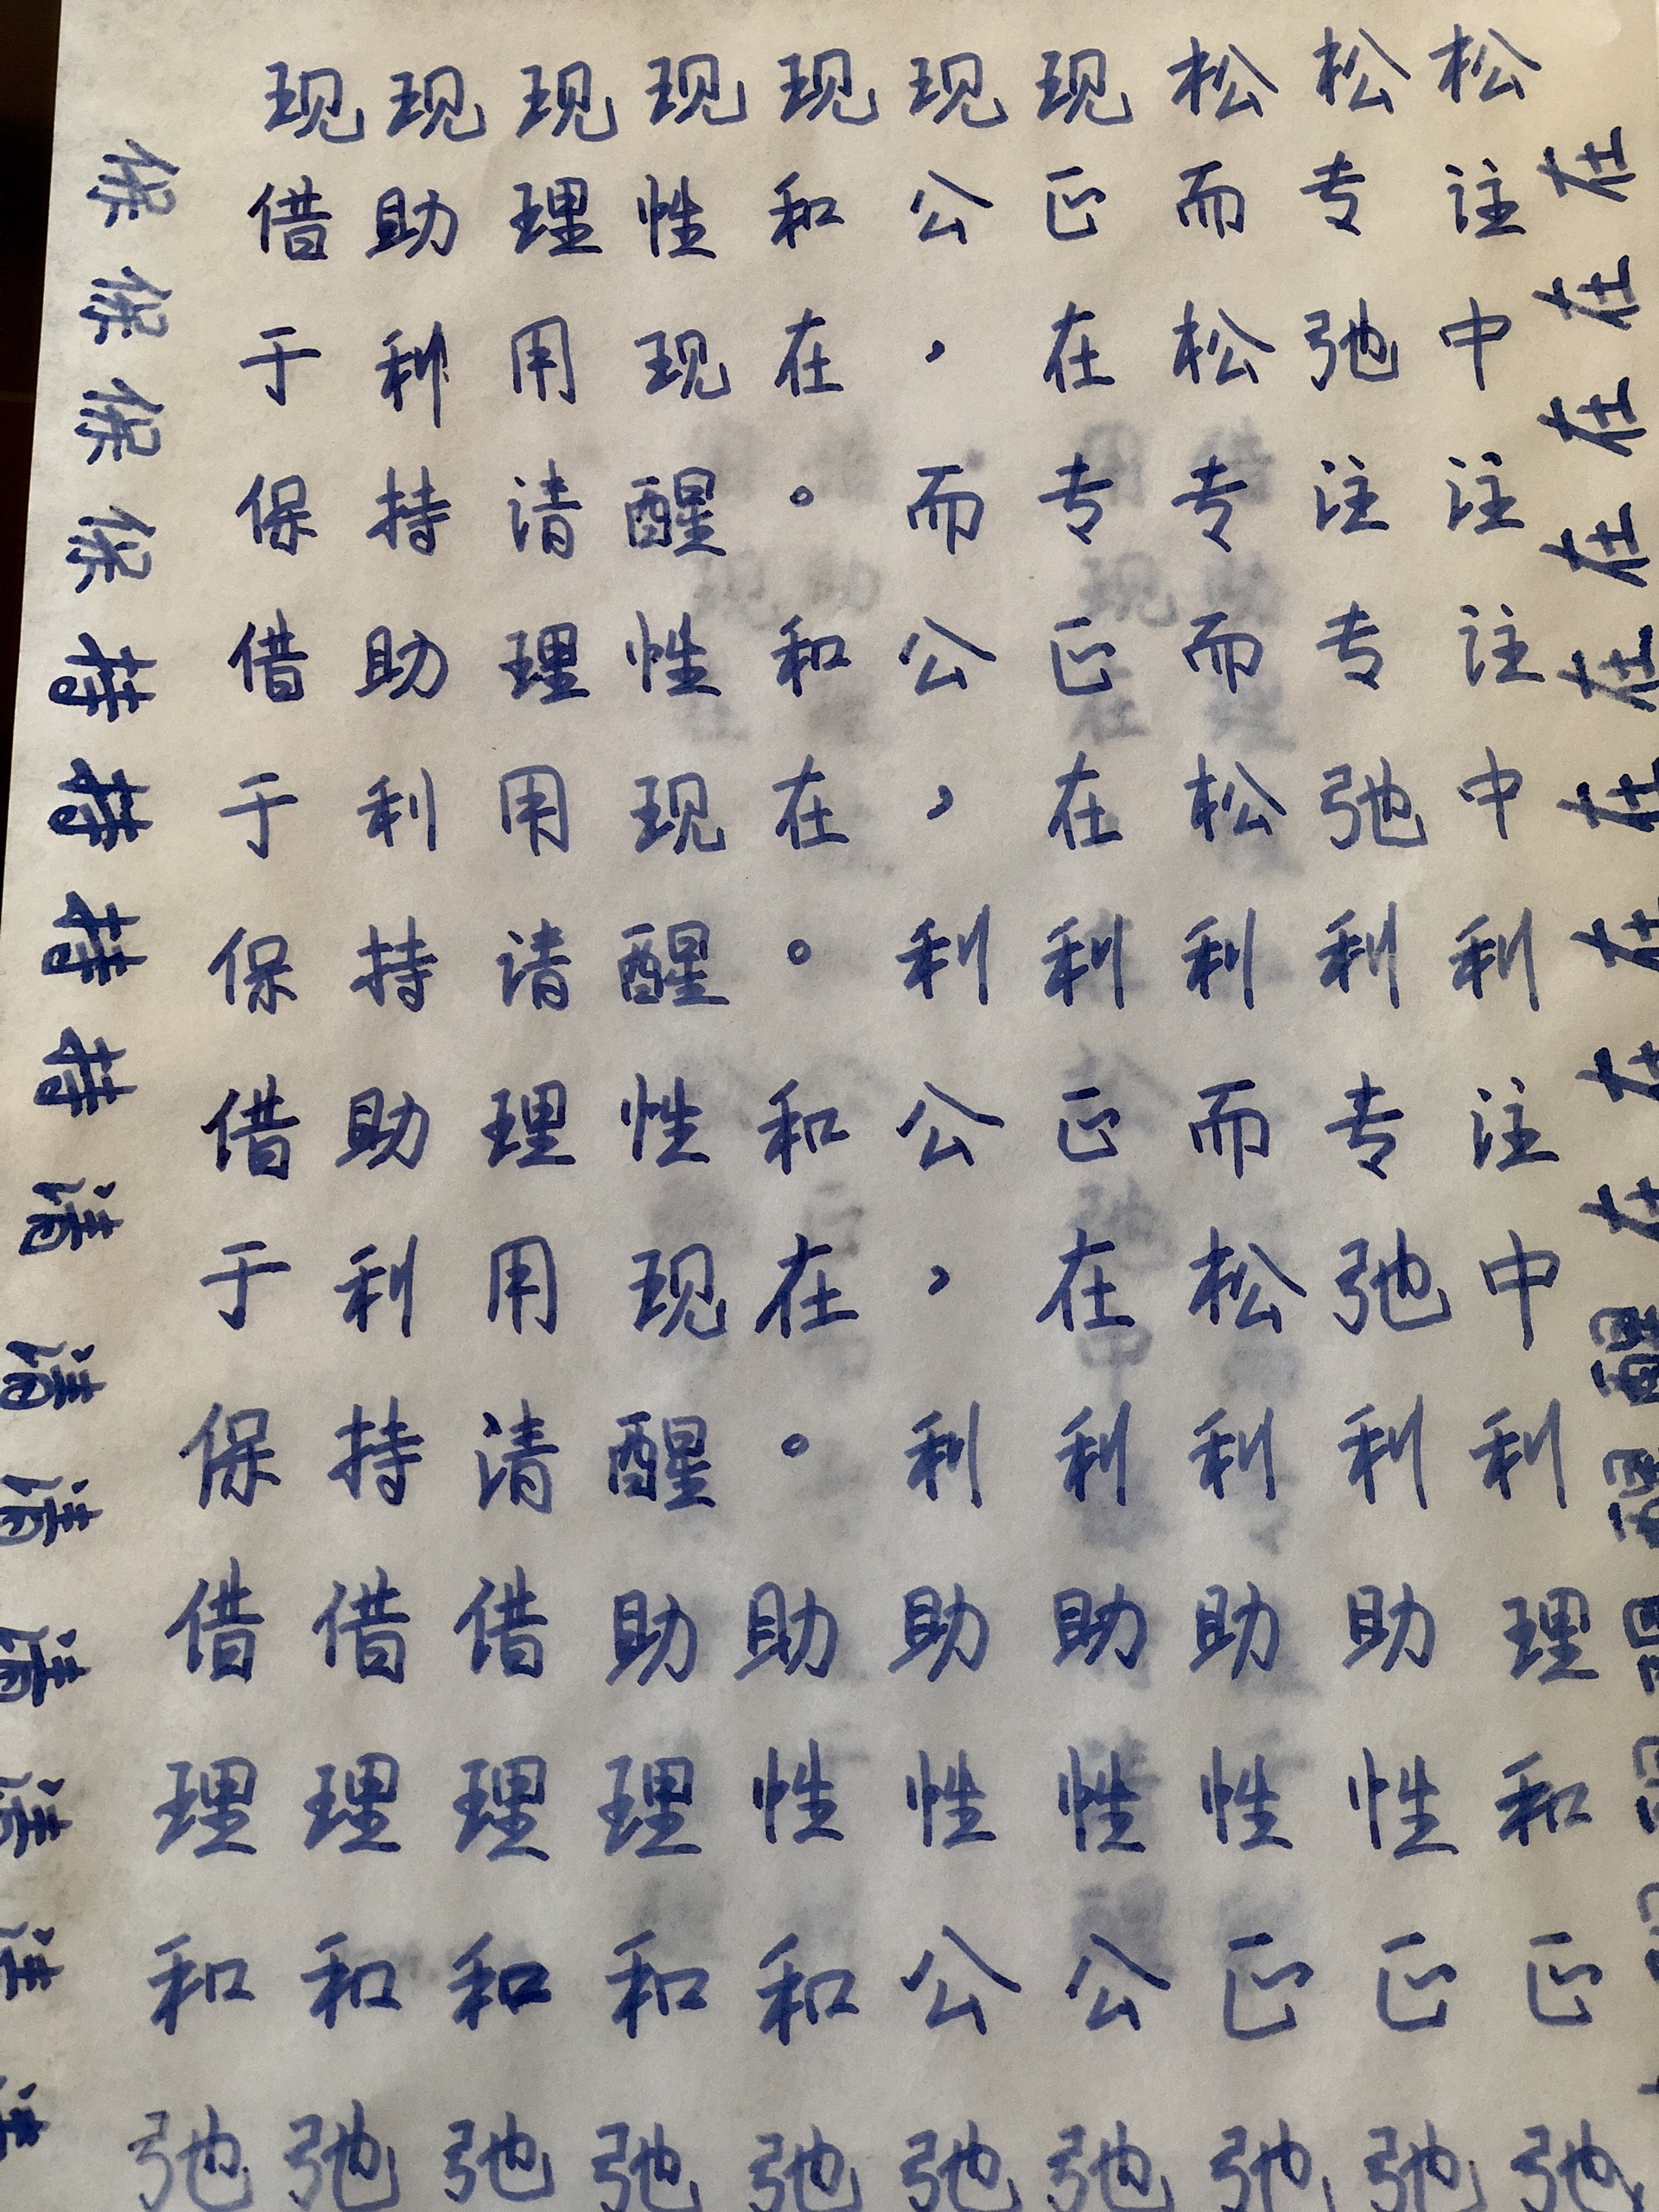 现现现现现现现松松松
借助理性和公正而专注
于利用现在，在松弛中
保持清醒。而专专注注
借助理性和公正而专注
于利用现在，在松弛中
保持清醒。利利利利利
借助理性和公正而专注
于利用现在，在松弛中
保持清醒。利利利利利
借借借助助助助助助理
理理理理性性性性性和
和和和和和公公正正正
弛弛弛弛弛弛弛弛弛弛
保保保保持持持持清清清清
在在在在在在在在在醒醒